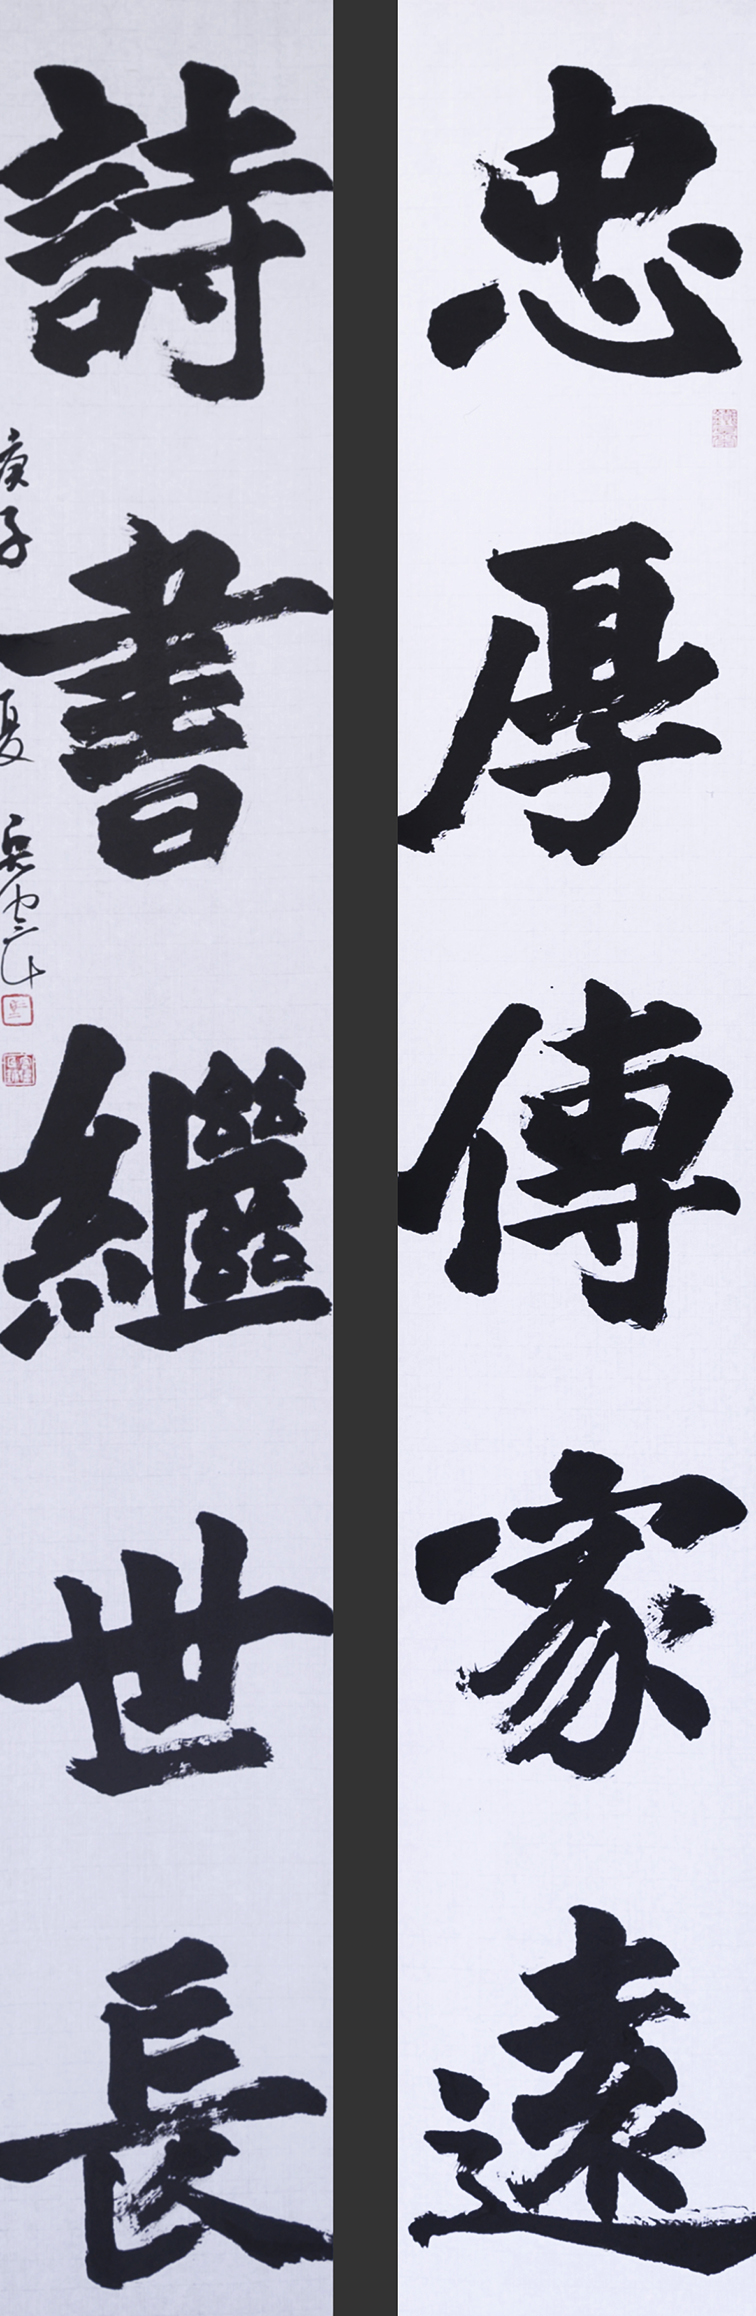 忠厚傳家遠
詩書繼世長
庚子夏